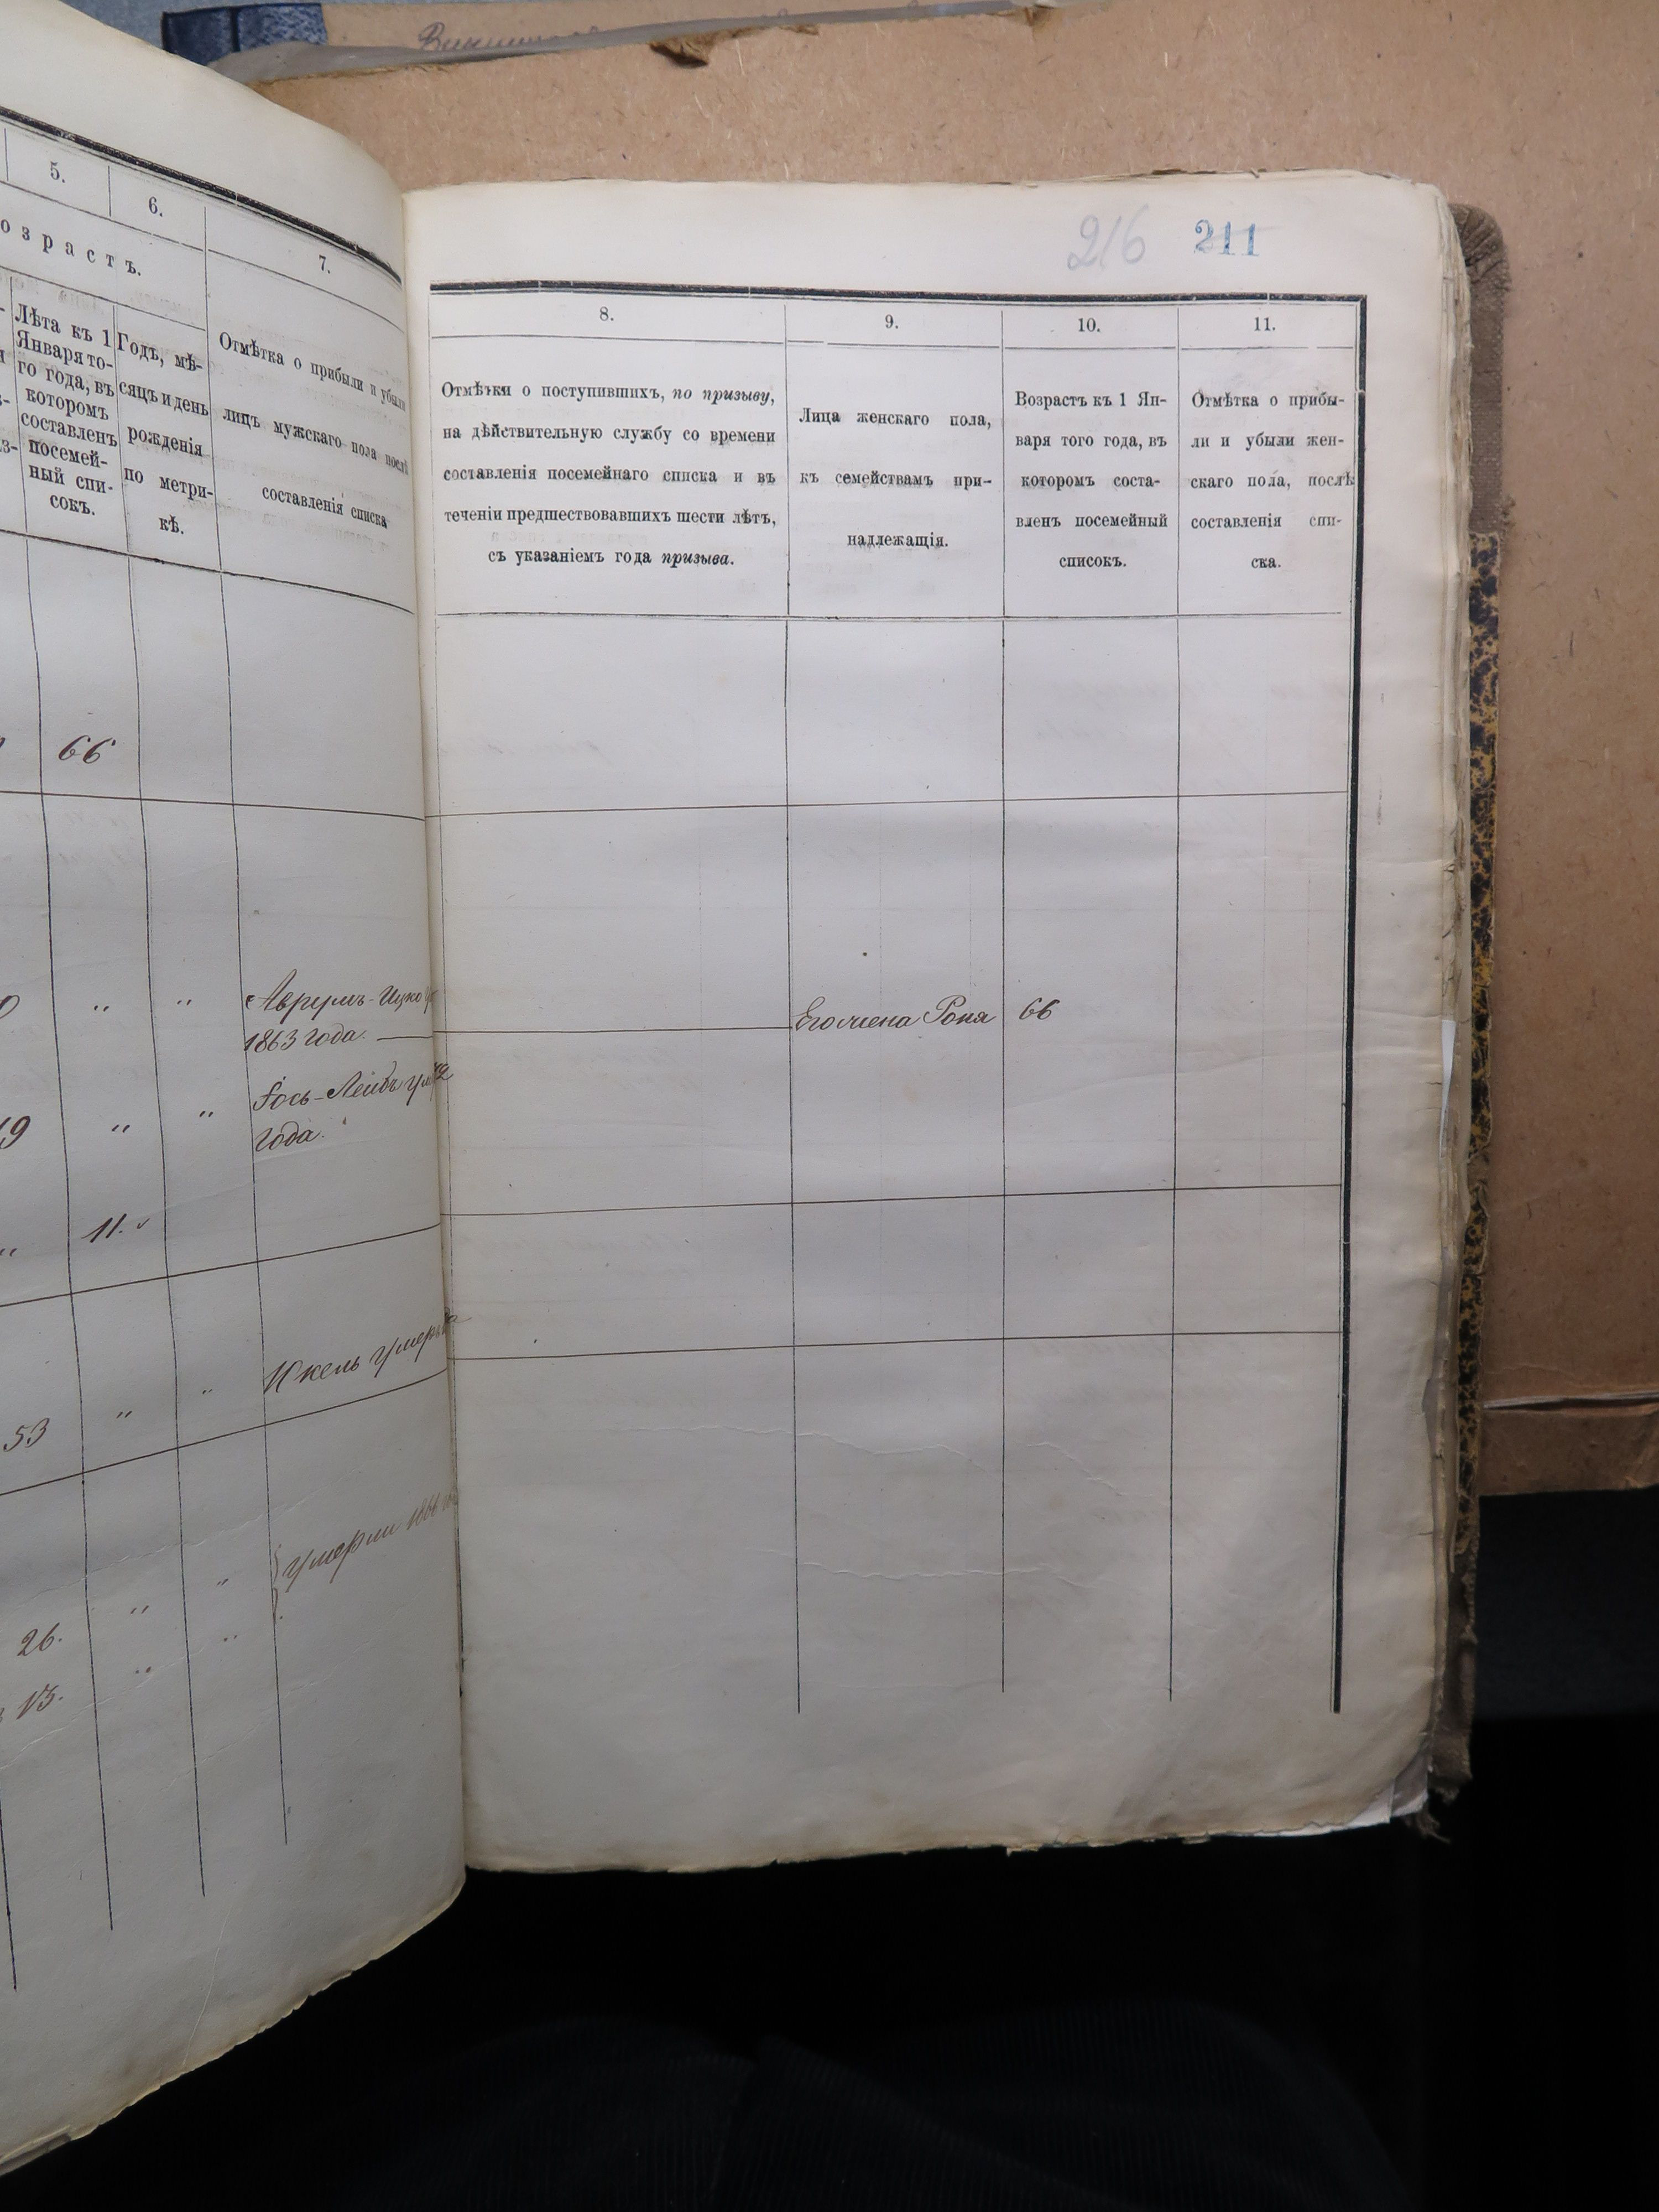 5.
6.
7.
озрастъ.
Лѣта къ 1
Января то-
го года, въ
которомъ
составленъ
посемей-
ный спи-
сокъ.
Годъ, мѣ-
сяцъ и день
рожденія
по метри-
кѣ.
Отмѣтка о прибыли и убыли
лицъ мужскаго пола послѣ
составленія списка
66
" " Аврумъ-Ицко
1863 года.
19 " " Іось-Лейбъ
года.
" 11.
53 " " Икель умеръ
26. " " умерли 1866
13. " "
216 211
8.
9.
10.
11.
Отмѣтки о поступившихъ, по призыву,
на дѣйствительную службу со времени
составленія посемейнаго списка и въ
теченіи предшествовавшихъ шести лѣтъ,
съ указаніемъ года призыва.
Лица женскаго пола,
къ семействамъ при-
надлежащія.
Возрастъ къ 1 Ян-
варя того года, въ
которомъ соста-
вленъ посемейный
списокъ.
Отмѣтка о прибы-
ли и убыли жен-
скаго пола, послѣ
составленія спи-
ска.
Его жена Роня 66